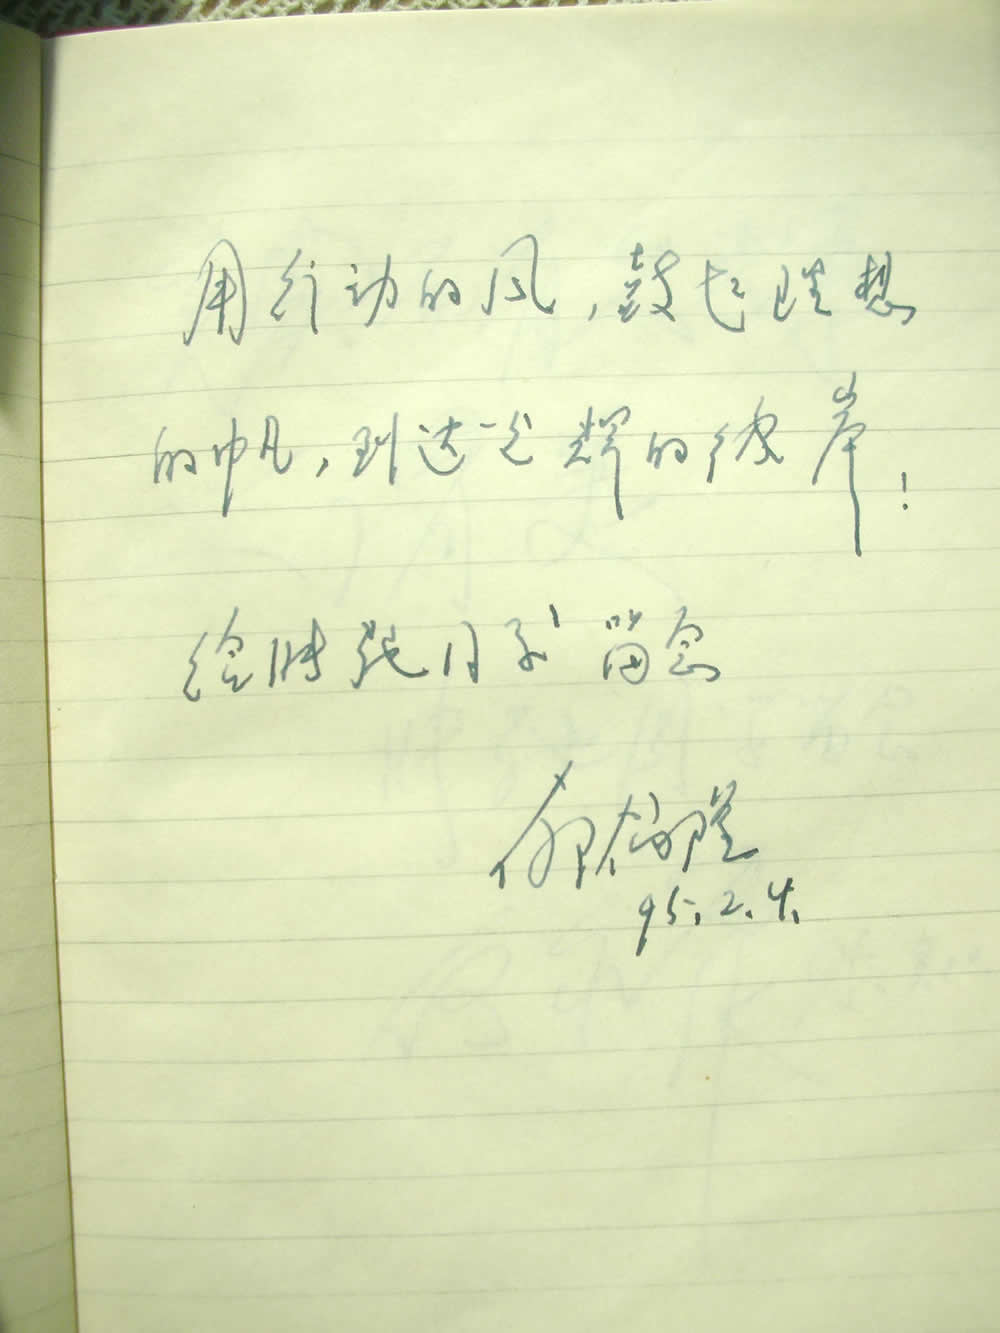 用行动的风，鼓起理想
的帆，到达光辉的彼岸！
给晓 同学留念
95.2.4.